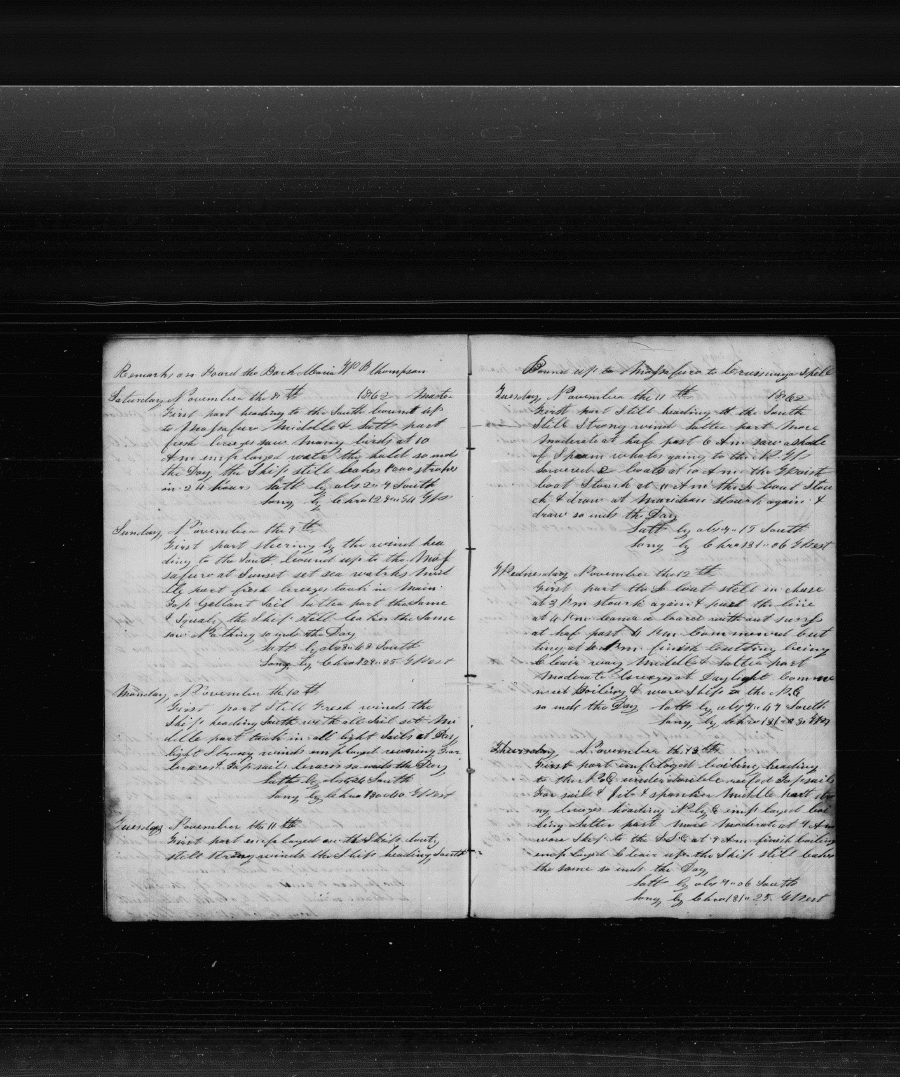 Remarks on Board the Bark Maria Wm B Thompson
Saturday November the 8th 1862 Master
First part heading to the South bound up
to Masafuro Middle & Latt part
fresh breezes saw many birds at 10
Am employed water the hold so ends
the Day the Ship still leakes 8000 strokes
in 24 hours Latt by obs 20 South
Long by Chro 12 West
Sunday November the 9th
First part steering by the wind hea
ding to the South bound up to the Mas
safuro at Sunset set sea watches Mid
dle part fresh breezes took in Main
Top Gallant Sail Latter part the Same
& Squaly the Ship still leakes the Same
saw Nothing so ends the Day
Latt by obs South
Long by Chro 12 25 West
Monday November the 10th
First part Still Fresh winds the
Ship heading South with all Sail set Mi
ddle part took in all light Sails at Day
light Strong winds employed reeving Fore
braces & Topsails braces so ends the Day
Latt by obs South
Long by Chro 130 40 West
Tuesday November the 11th
First part employed on the Ships duty
still strong winds the Ship heading South
Bound up to Masafuro to Cruse a Spell
Tuesday November the 11th 1862
First part Still heading to the South
Still Strong wind Latter part More
Moderate at half past 6 Am saw a shole
of Spearm whales going to the
Lowered 2 boats at 10 Am the Waist
boat Struck at 11 Am the boat Strou
ck & draw at Meridian struck again &
draw so ends the Day
Latt by obs 19 South
Long by Chro 131 06 West
Wednesday November the 12th
First part the boat still in chase
at 3 Pm struck again & the line
at 4 Pm
at half past 4 Pm Commenced Cut
ting at 6 Pm finish Cutting being
Clear way Middle & Latter part
Moderate breezes at Daylight Comme
nced Boiling & ware Ship to the NE
so ends the Day Latt by obs 47 South
Long by Chro 131 30 West
Thursday November the 13th
First part employed boiling heading
to the NE under double reefed Topsails
Foresail & Jib & spanker Middle part stro
ng breezes heading N by E employed boi
ling Latter part More Moderate at 4 Am
ware Ship to the at 9 Am finish boiling
employed Clear up the Ship still leakes
the same so ends the Day
Latt by obs 06 South
Long by Chro 131 25 West